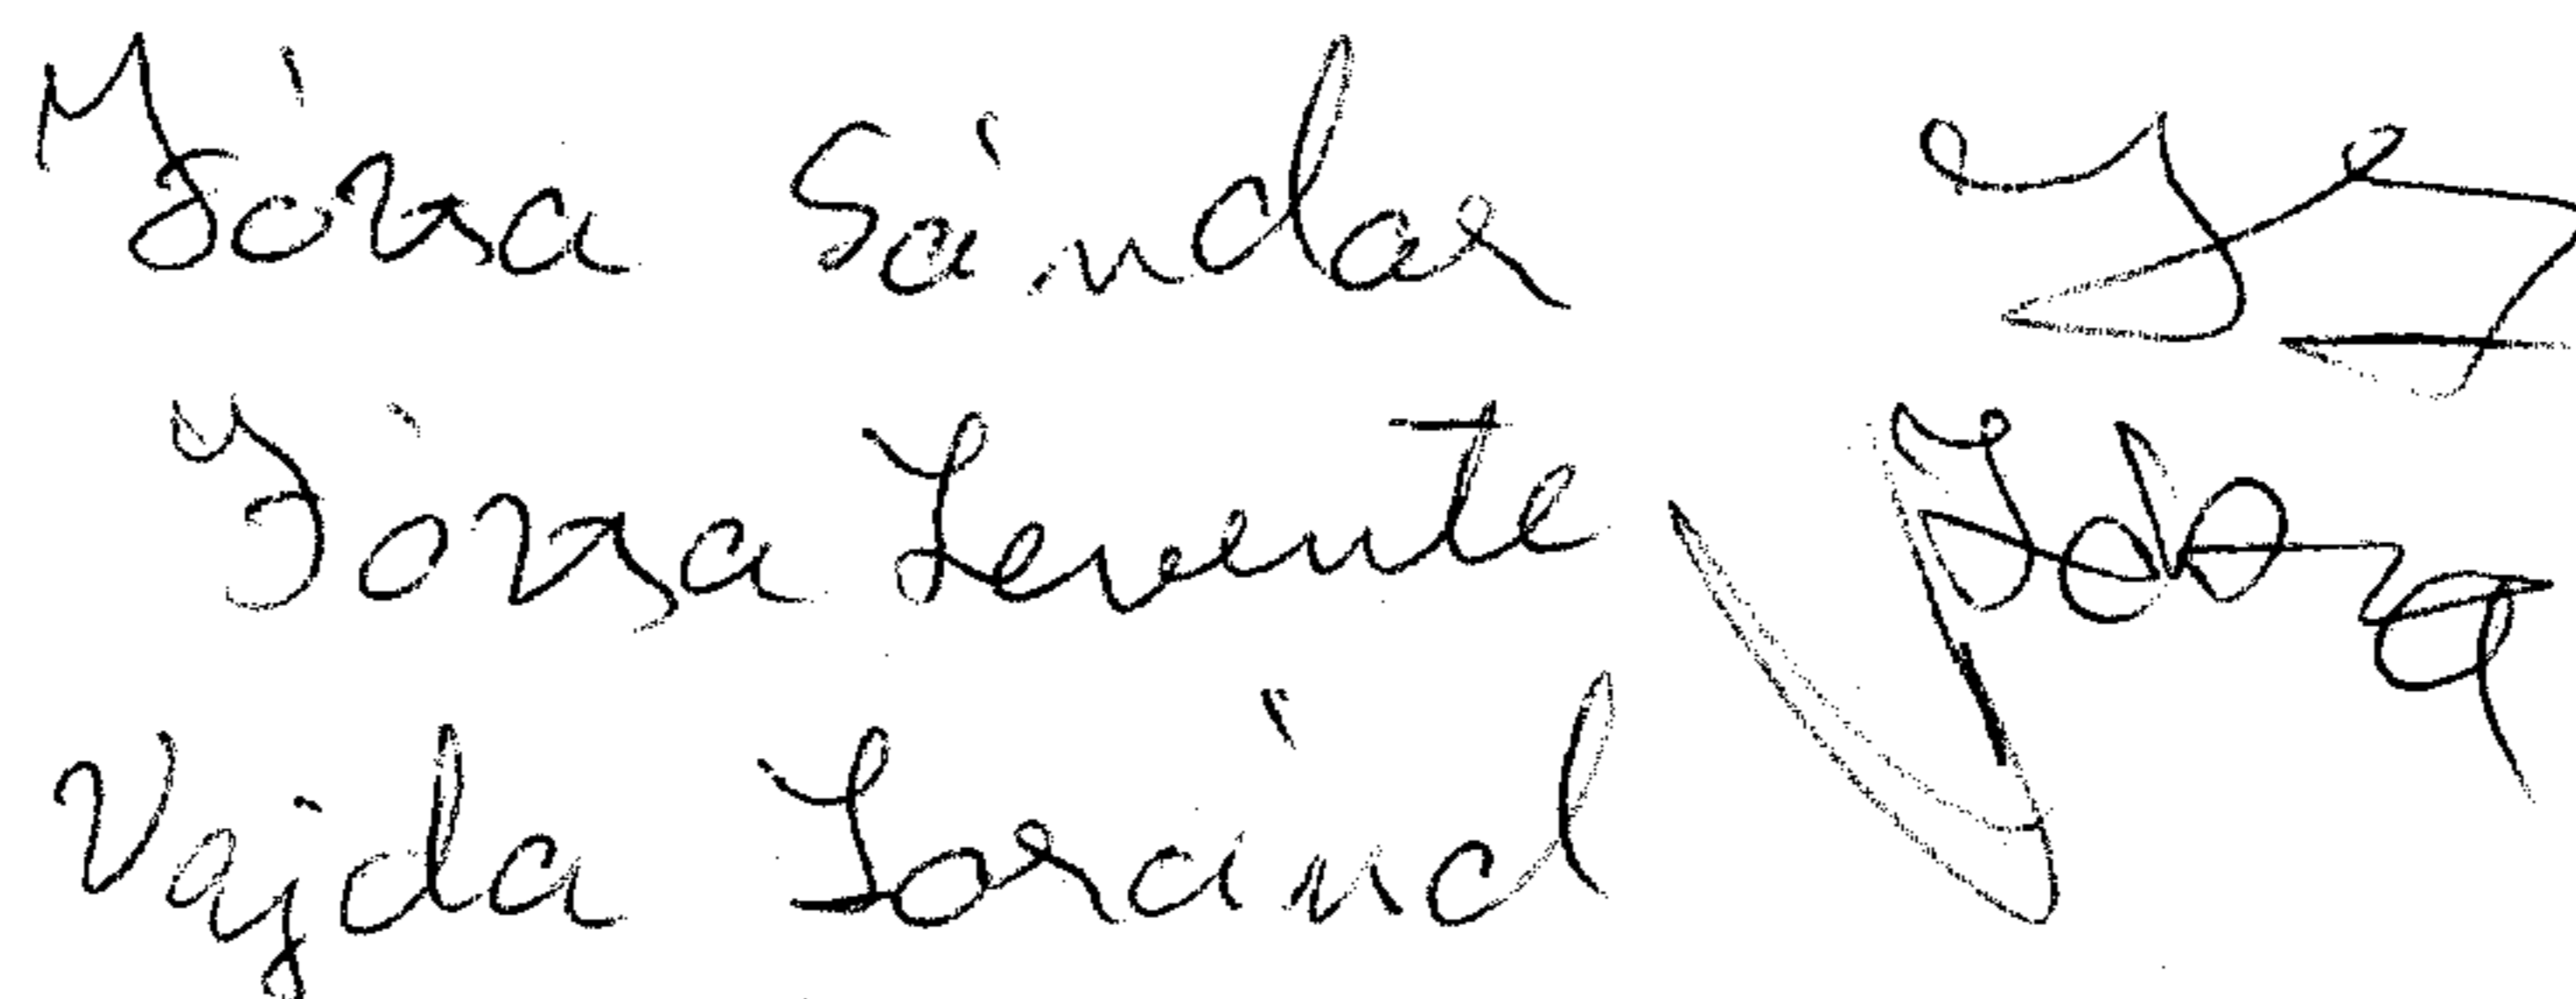 Józsa Sándor
Józsa Levente
Vajda Loránd